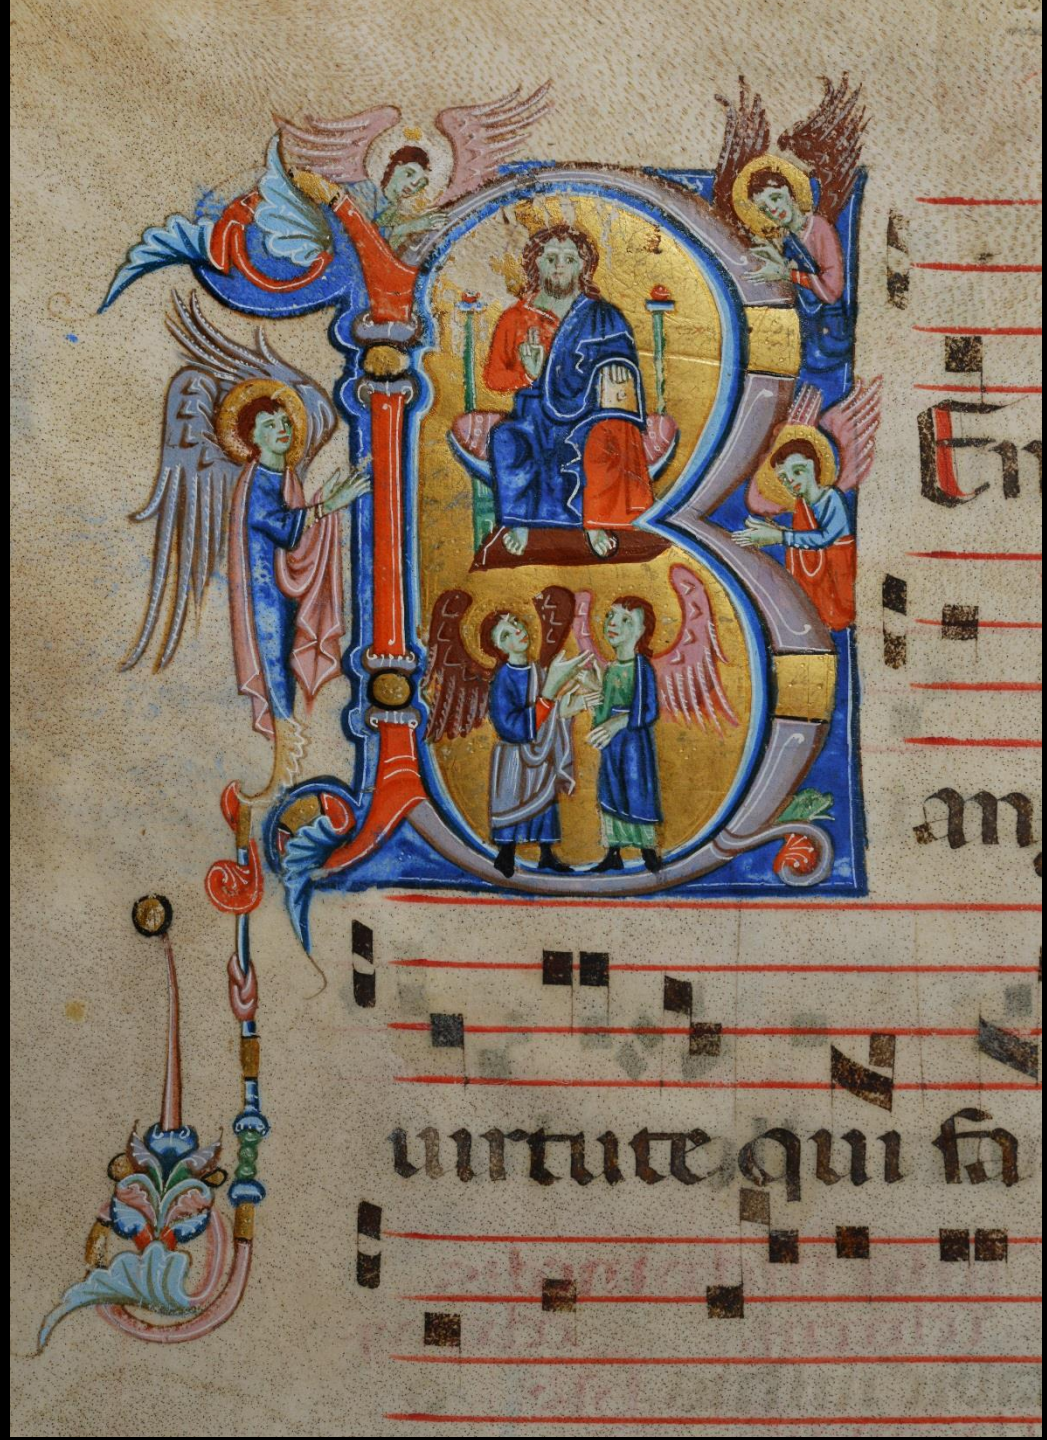 B
En
an
uirtute qui fa